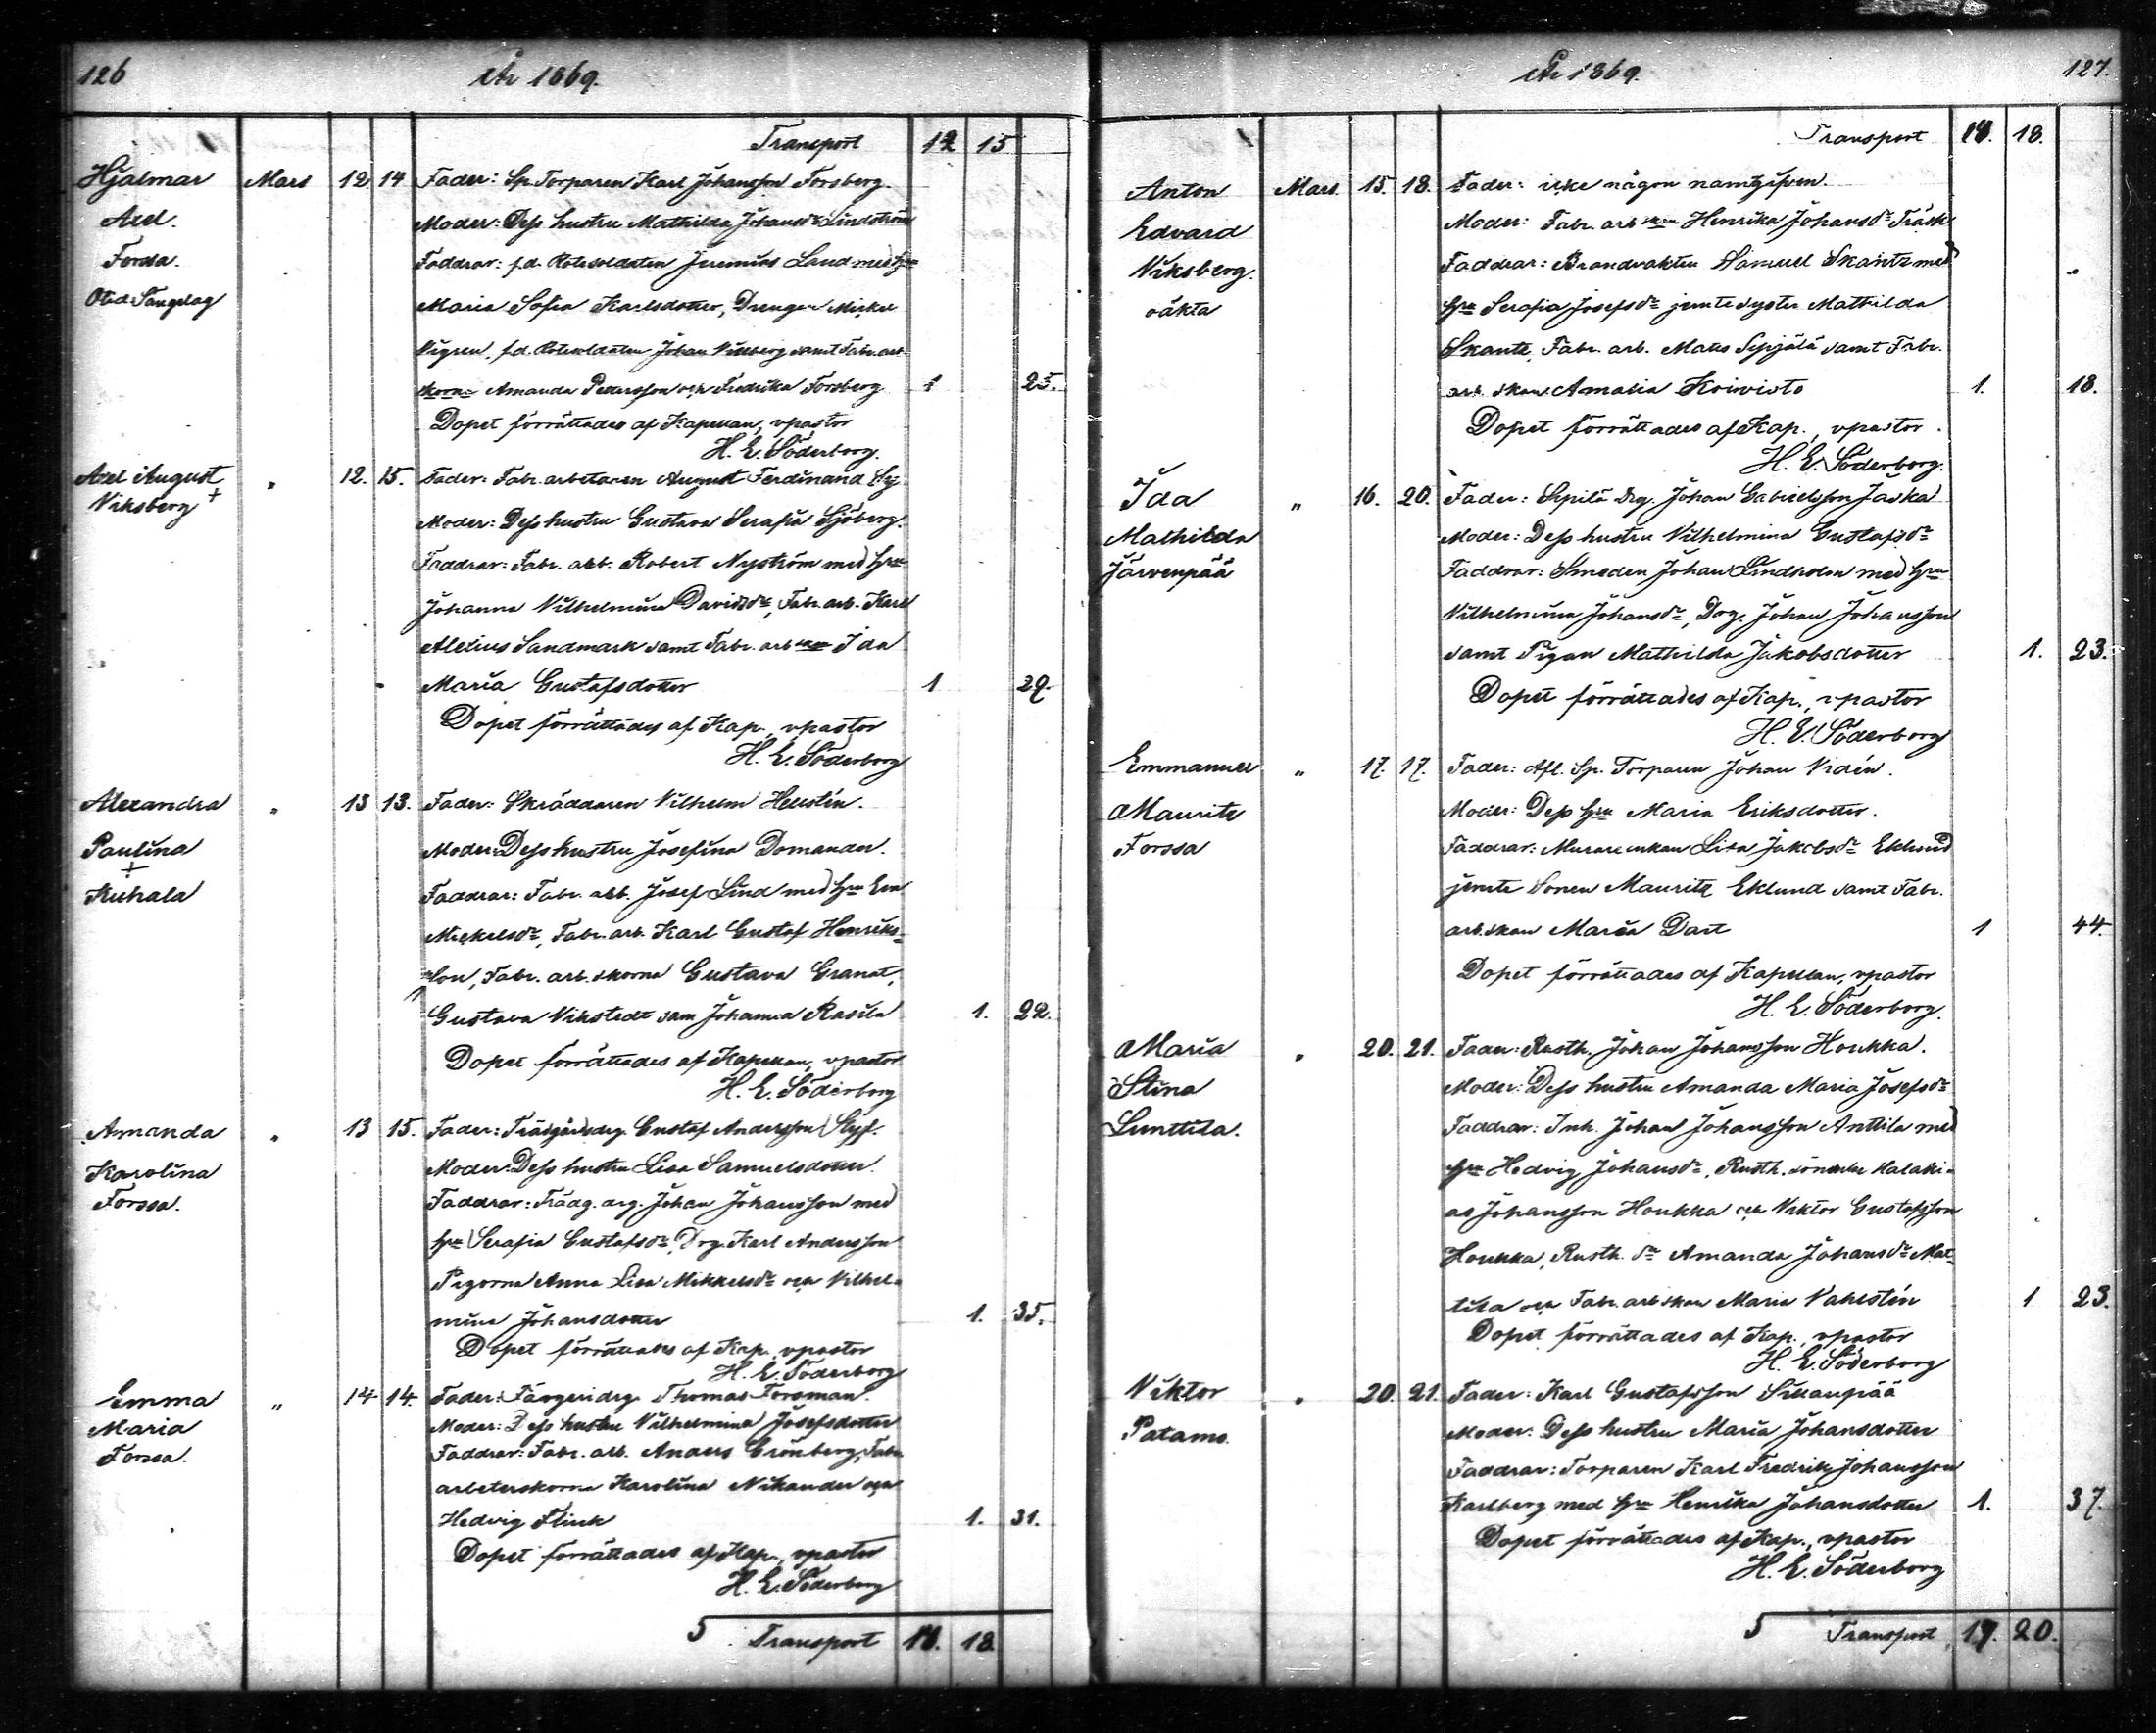 126
År 1869.
Transport 12 15
Hjalmar Mars 12. 14 Fader: Sp. Torparen Karl Johansson Forsberg.
Axel. Moder: Dess hustru Mathilda Johansdr Lindström
Forssa. Faddrar: f.d. Rotesoldaten Jeremias Land med hru
Maria Sofia Karlsdotter, Drengen Mickel
Vigren, f.d. Rotesoldaten Johan Viksberg samt Fabr. arb.
skorna Amanda Pettersson och Fredrika Forsberg 1 25.
Dopet förrättades af Kapellan, vpastor
H. E. Söderborg.
Axel August " 12. 15. Fader: Fabr. arbetaren August Ferdinand
Viksberg + Moder: Dess hustru Gustava Serafia Sjöberg.
Faddrar: Fabr. arb. Robert Nyström med hru
Johanna Vilhelmina Davidsdr, Fabr. arb. Karl
Alexius Sandmark samt Fabr. arb skan Ida
Maria Gustafsdotter 1 29.
Dopet förrättades af Kap., vpastor
H. E. Söderborg
Alexandra " 13 13. Fader: Skräddaren Vilhelm Hellstén.
Paulina Moder: Dess hustru Josefina Domander.
+
Kuhala Faddrar: Fabr. arb. Josef Lind med hru Eva
Mickelsdr, Fabr. arb. Karl Gustaf Henriks-
son, Fabr. arb. skorna Gustava Granat,
Gustava Vikstedt sam Johanna Rasila 1. 22.
Dopet förrättades af Kapellan, vpastor
H. E. Söderborg
Amanda " 13 15. Fader: Trädgårdsdrg. Gustaf Andersson
Karolina Moder: Dess hustru Lisa Samuelsdotter.
Forssa. Faddrar: Trädg. drg. Johan Johansson med
hru Serafia Gustafsdr, Drg. Karl Andersson
Pigorna Anna Lisa Mikkelsdr och Vilhel-
mina Johansdotter 1. 35.
Dopet förrättades af Kap. vpastor
H. E. Söderborg
Emma " 14 14. Fader: Färgeridrg. Thomas Forsman.
Maria Moder: Dess hustru Vilhelmina Josefsdotter
Forssa. Faddrar: Fabr. arb. Anders Grönberg, Fabr.
arbeterskorna Karolina Nikander och
Hedvig Flink 1. 31.
Dopet förrättades af Kap., vpastor
H. E. Söderborg
5 Transport 18.
År 1869.
127.
Transport 18.
Anton Mars. 15. 18. Fader: icke någon namngifven.
Edvard Moder: Fabr. arb skan Henrika Johansdr Träsk
Viksberg. Faddrar: Brandvakten Samuel Skantz med
oäkta hru Serafia Josefsdr jemte syster Mathilda
Skantz, Fabr. arb. Mats Sepjälä samt Fabr.
arb. skan Amalia Koivisto 1. 18.
Dopet förrättades af Kap., vpastor
H. E. Söderborg.
Ida " 16. 20. Fader: Sepilä Drg. Johan Gabrielsson Jaska
Mathilda Moder: Dess hustru Vilhelmina Gustafsdr
Järvenpää Faddrar: Smeden Johan Lindholm med hru
Vilhelmina Johansdr, Drg. Johan Johansson
samt Pigan Mathilda Jakobsdotter 1. 23.
Dopet förrättades af Kap., vpastor
H. E. Söderborg
Emmanuel " 17. 17. Fader: Afl. Sp. Torparen Johan Vidén.
Mauritz Moder: Dess hru Maria Eriksdotter.
Forssa Faddrar: Murareenkan Lisa Jakobsdr Eklund
jemte Sonen Mauritz Eklund samt Fabr.
arb.skan Maria Dart 1 44.
Dopet förrättades af Kapellan, vpastor
H. E. Söderborg.
Maria " 20. 21. Fader: Rusth. Johan Johansson Houkka.
Stina Moder: Dess hustru Amanda Maria Josefsdr
Lunttila. Faddrar: Inh. Johan Johansson Anttila med
hru Hedvig Johansdr, Rusth. sönerne Malaki-
as Johansson Houkka och Viktor Gustafsson
Houkka, Rusth. dr Amanda Johansdr Mat-
tila och Fabr. arb skan Maria Vahlstén 1 23.
Dopet förrättades af Kap., vpastor
H. E. Söderborg
Viktor " 20. 21. Fader: Karl Gustafsson Sillanpää
Patamo. Moder: Dess hustru Maria Johansdotter
Faddrar: Torparen Karl Fredrik Johansson
Karlberg med hru Henrika Johansdotter 1. 37.
Dopet förrättades af Kap., vpastor
H. E. Söderborg
5 Transport 17. 20.